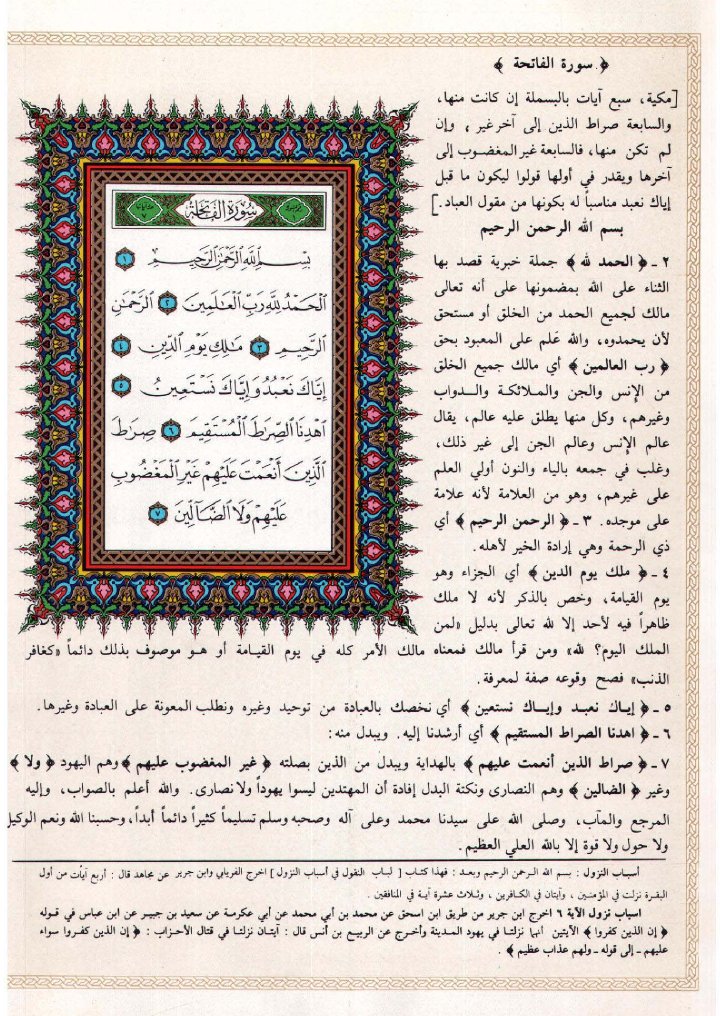 ﴿ سورة الفاتحة ﴾
[مكية، سبع آيات بالبسملة إن كانت منها،
والسابعة صراط الذين إلى آخر غير ، وإن
لم تكن منها، فالسابعة غير المغضوب إلى
آخرها ويقدر في أولها قولوا ليكون ما قبل
إياك نعبد مناسباً له بكونها من مقول العباد.]
بسم الله الرحمن الرحيم
٢ ـ ﴿ الحمد لله ﴾ جملة خبرية قصد بها
الثناء على الله بمضمونها على أنه تعالى
مالك لجميع الحمد من الخلق أو مستحق
لأن يحمدوه، والله عَلم على المعبود بحق
﴿ رب العالمين ﴾ أي مالك جميع الخلق
من الإنس والجن والملائكة والدواب
وغيرهم، وكل منها يطلق عليه عالم، يقال
عالم الإنس وعالم الجن إلى غير ذلك،
وغلب في جمعه بالياء والنون أولي العلم
على غيرهم، وهو من العلامة لأنه علامة
على موجده. ٣ ـ ﴿ الرحمن الرحيم ﴾ أي
ذي الرحمة وهي إرادة الخير لأهله.
٤ ـ ﴿ ملك يوم الدين ﴾ أي الجزاء وهو
يوم القيامة، وخص بالذكر لأنه لا ملك
ظاهراً فيه لأحد إلا لله تعالى بدليل «لمن
الملك اليوم؟ لله» ومن قرأ مالك فمعناه مالك الأمر كله في يوم القيامة أو هو موصوف بذلك دائماً «كغافر
الذنب» فصح وقوعه صفة لمعرفة.
٥ ـ ﴿ إياك نعبد وإياك نستعين ﴾ أي نخصك بالعبادة من توحيد وغيره ونطلب المعونة على العبادة وغيرها.
٦ ـ ﴿ اهدنا الصراط المستقيم ﴾ أي أرشدنا إليه. ويبدل منه:
٧ ـ ﴿ صراط الذين أنعمت عليهم ﴾ بالهداية ويبدل من الذين بصلته ﴿ غير المغضوب عليهم ﴾ وهم اليهود ﴿ ولا ﴾
وغير ﴿ الضالين ﴾ وهم النصارى ونكتة البدل إفادة أن المهتدين ليسوا يهوداً ولا نصارى. والله أعلم بالصواب، وإليه
المرجع والمآب، وصلى الله على سيدنا محمد وعلى آله وصحبه وسلم تسليماً كثيراً دائماً أبداً، وحسبنا الله ونعم الوكيل
ولا حول ولا قوة إلا بالله العلي العظيم.
سُورَةُ الفَاتِحَةِ
بِسْمِ ٱللَّهِ ٱلرَّحْمَٰنِ ٱلرَّحِيمِ ١
ٱلْحَمْدُ لِلَّهِ رَبِّ ٱلْعَٰلَمِينَ ٢ ٱلرَّحْمَٰنِ
ٱلرَّحِيمِ ٣ مَٰلِكِ يَوْمِ ٱلدِّينِ ٤
إِيَّاكَ نَعْبُدُ وَإِيَّاكَ نَسْتَعِينُ ٥
ٱهْدِنَا ٱلصِّرَٰطَ ٱلْمُسْتَقِيمَ ٦ صِرَٰطَ
ٱلَّذِينَ أَنْعَمْتَ عَلَيْهِمْ غَيْرِ ٱلْمَغْضُوبِ
عَلَيْهِمْ وَلَا ٱلضَّآلِّينَ ٧
أسباب النزول : بسم الله الرحمن الرحيم وبعد : فهذا كتاب [ لباب النقول في أسباب النزول ] اخرج الفريابي وابن جرير عن مجاهد قال : أربع آيات من أول
البقرة نزلت في المؤمنين ، وآيتان في الكافرين ، وثلاث عشرة آية في المنافقين .
اسباب نزول الآية ٦ اخرج ابن جرير من طريق ابن اسحق عن محمد بن أبي محمد عن أبي عكرمة عن سعيد بن جبير عن ابن عباس في قوله
﴿ إن الذين كفروا ﴾ الآيتين أنهما نزلتا في يهود المدينة وأخرج عن الربيع بن أنس قال : آيتان نزلتا في قتال الأحزاب : ﴿ إن الذين كفروا سواء
عليهم ـ إلى قوله ـ ولهم عذاب عظيم ﴾ .